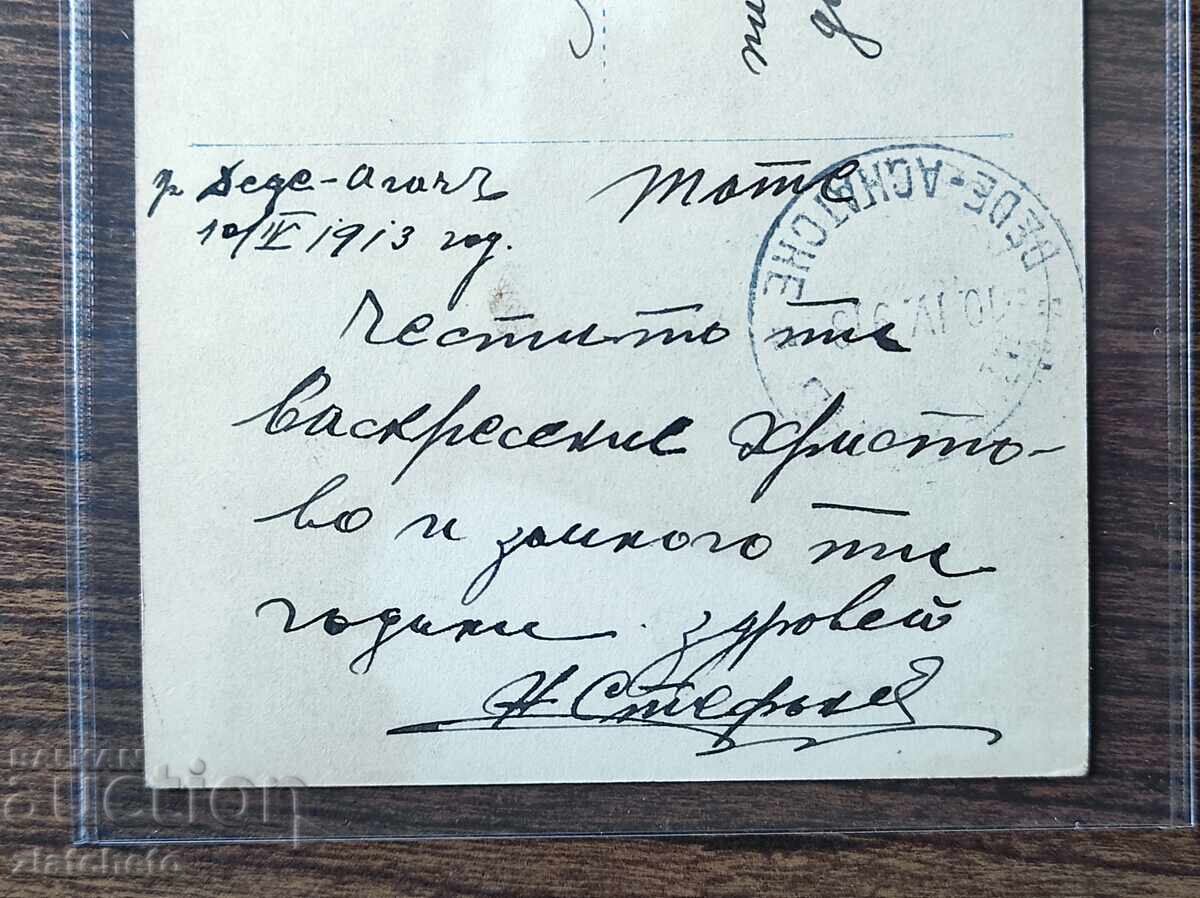 гр Деде-Агачъ
10/IV 1913 год.
Тоте
Честито ти
васкресение Христо-
во и замного ти
години. здравей
Н Стефане
DEDE-AGHATCHE
10.IV.913
BALKAN
auction
zlatcheto